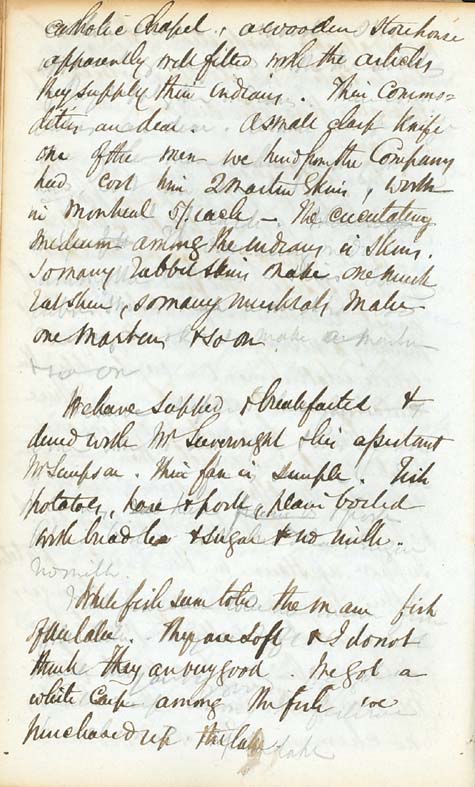 Catholic Chapel, a wooden Storehouse
apparently well filled with the articles
they supply their indians. Their Commo-
dities are dear. A small clasp Knife
one of the men we hired from the Company
had, cost him 2 martin skins, worth
in Montreal 5/. each – The circulating
medium among the indians is Skins.
So many rabbit skins make one musk
rat skin, so many muskrats make
one Marten & so on
make a martin
& so on
We have supped & breakfasted &
dined with Mr Sieverwright & his assistant
Mr Simpson. Their fare is simple. Fish
potatoes, & pork, plain boiled
with bread tea & sugar & no milk.
no milk.
White fish seem to be the main fish
of the lake. They are soft & I do not
think they are very good. We got a
white Carp among the fish we
purchased up the lake
lake